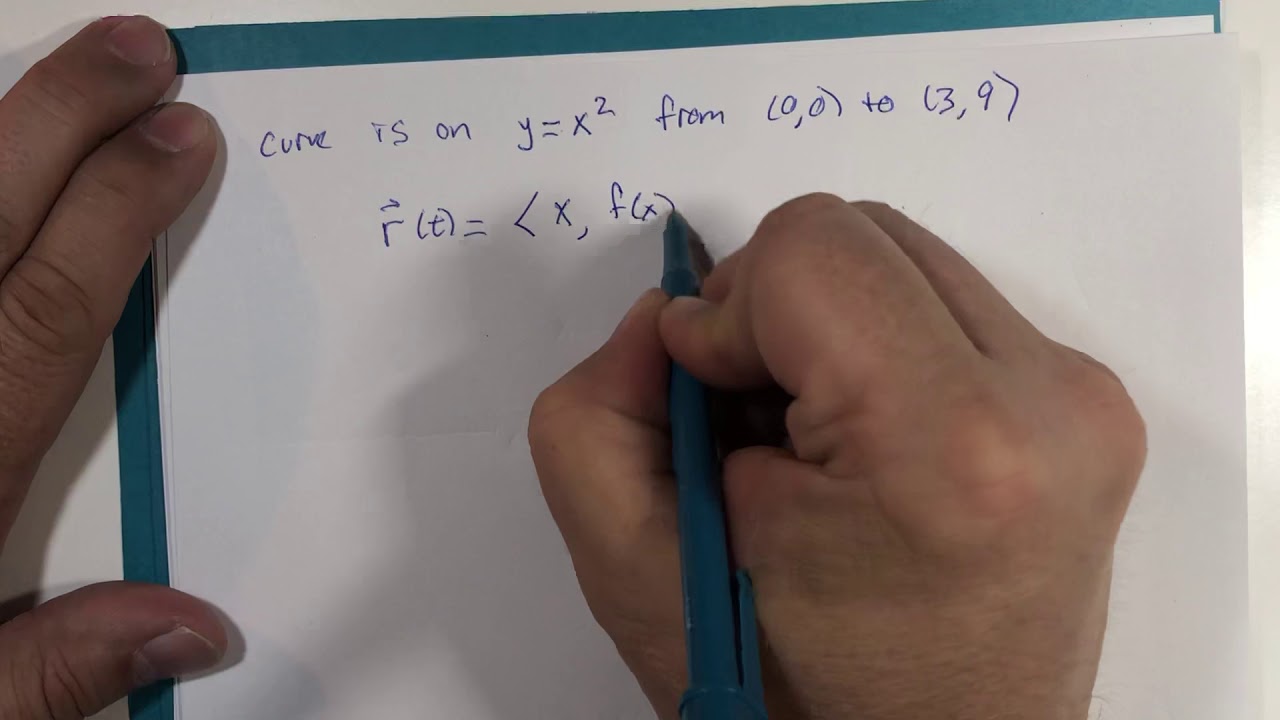 curve is on y=x² from (0,0) to (3,9)
r⃗(t)= <x, f(x)